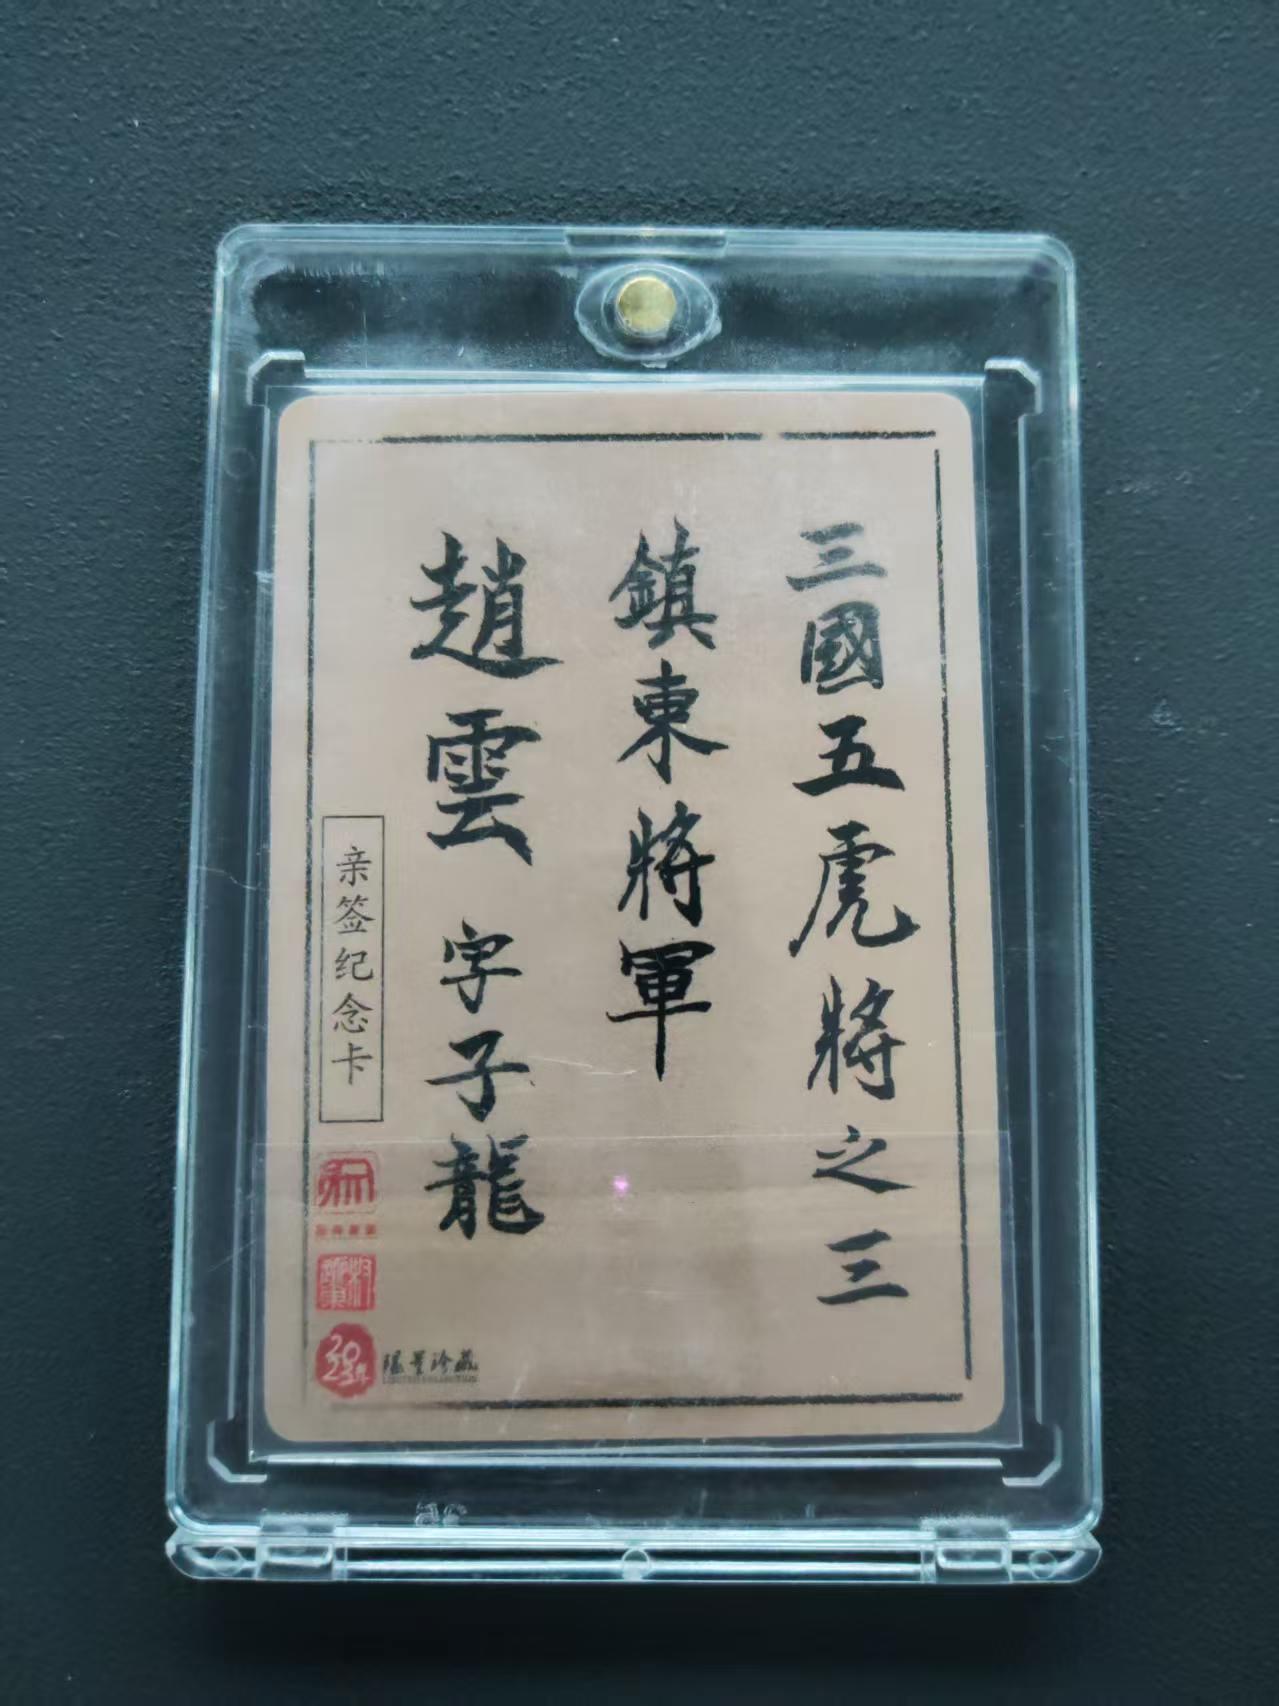 三國五虎將之三
鎮東將軍
趙雲 字子龍
亲签纪念卡
限量珍藏
LIMITED COLLECTION